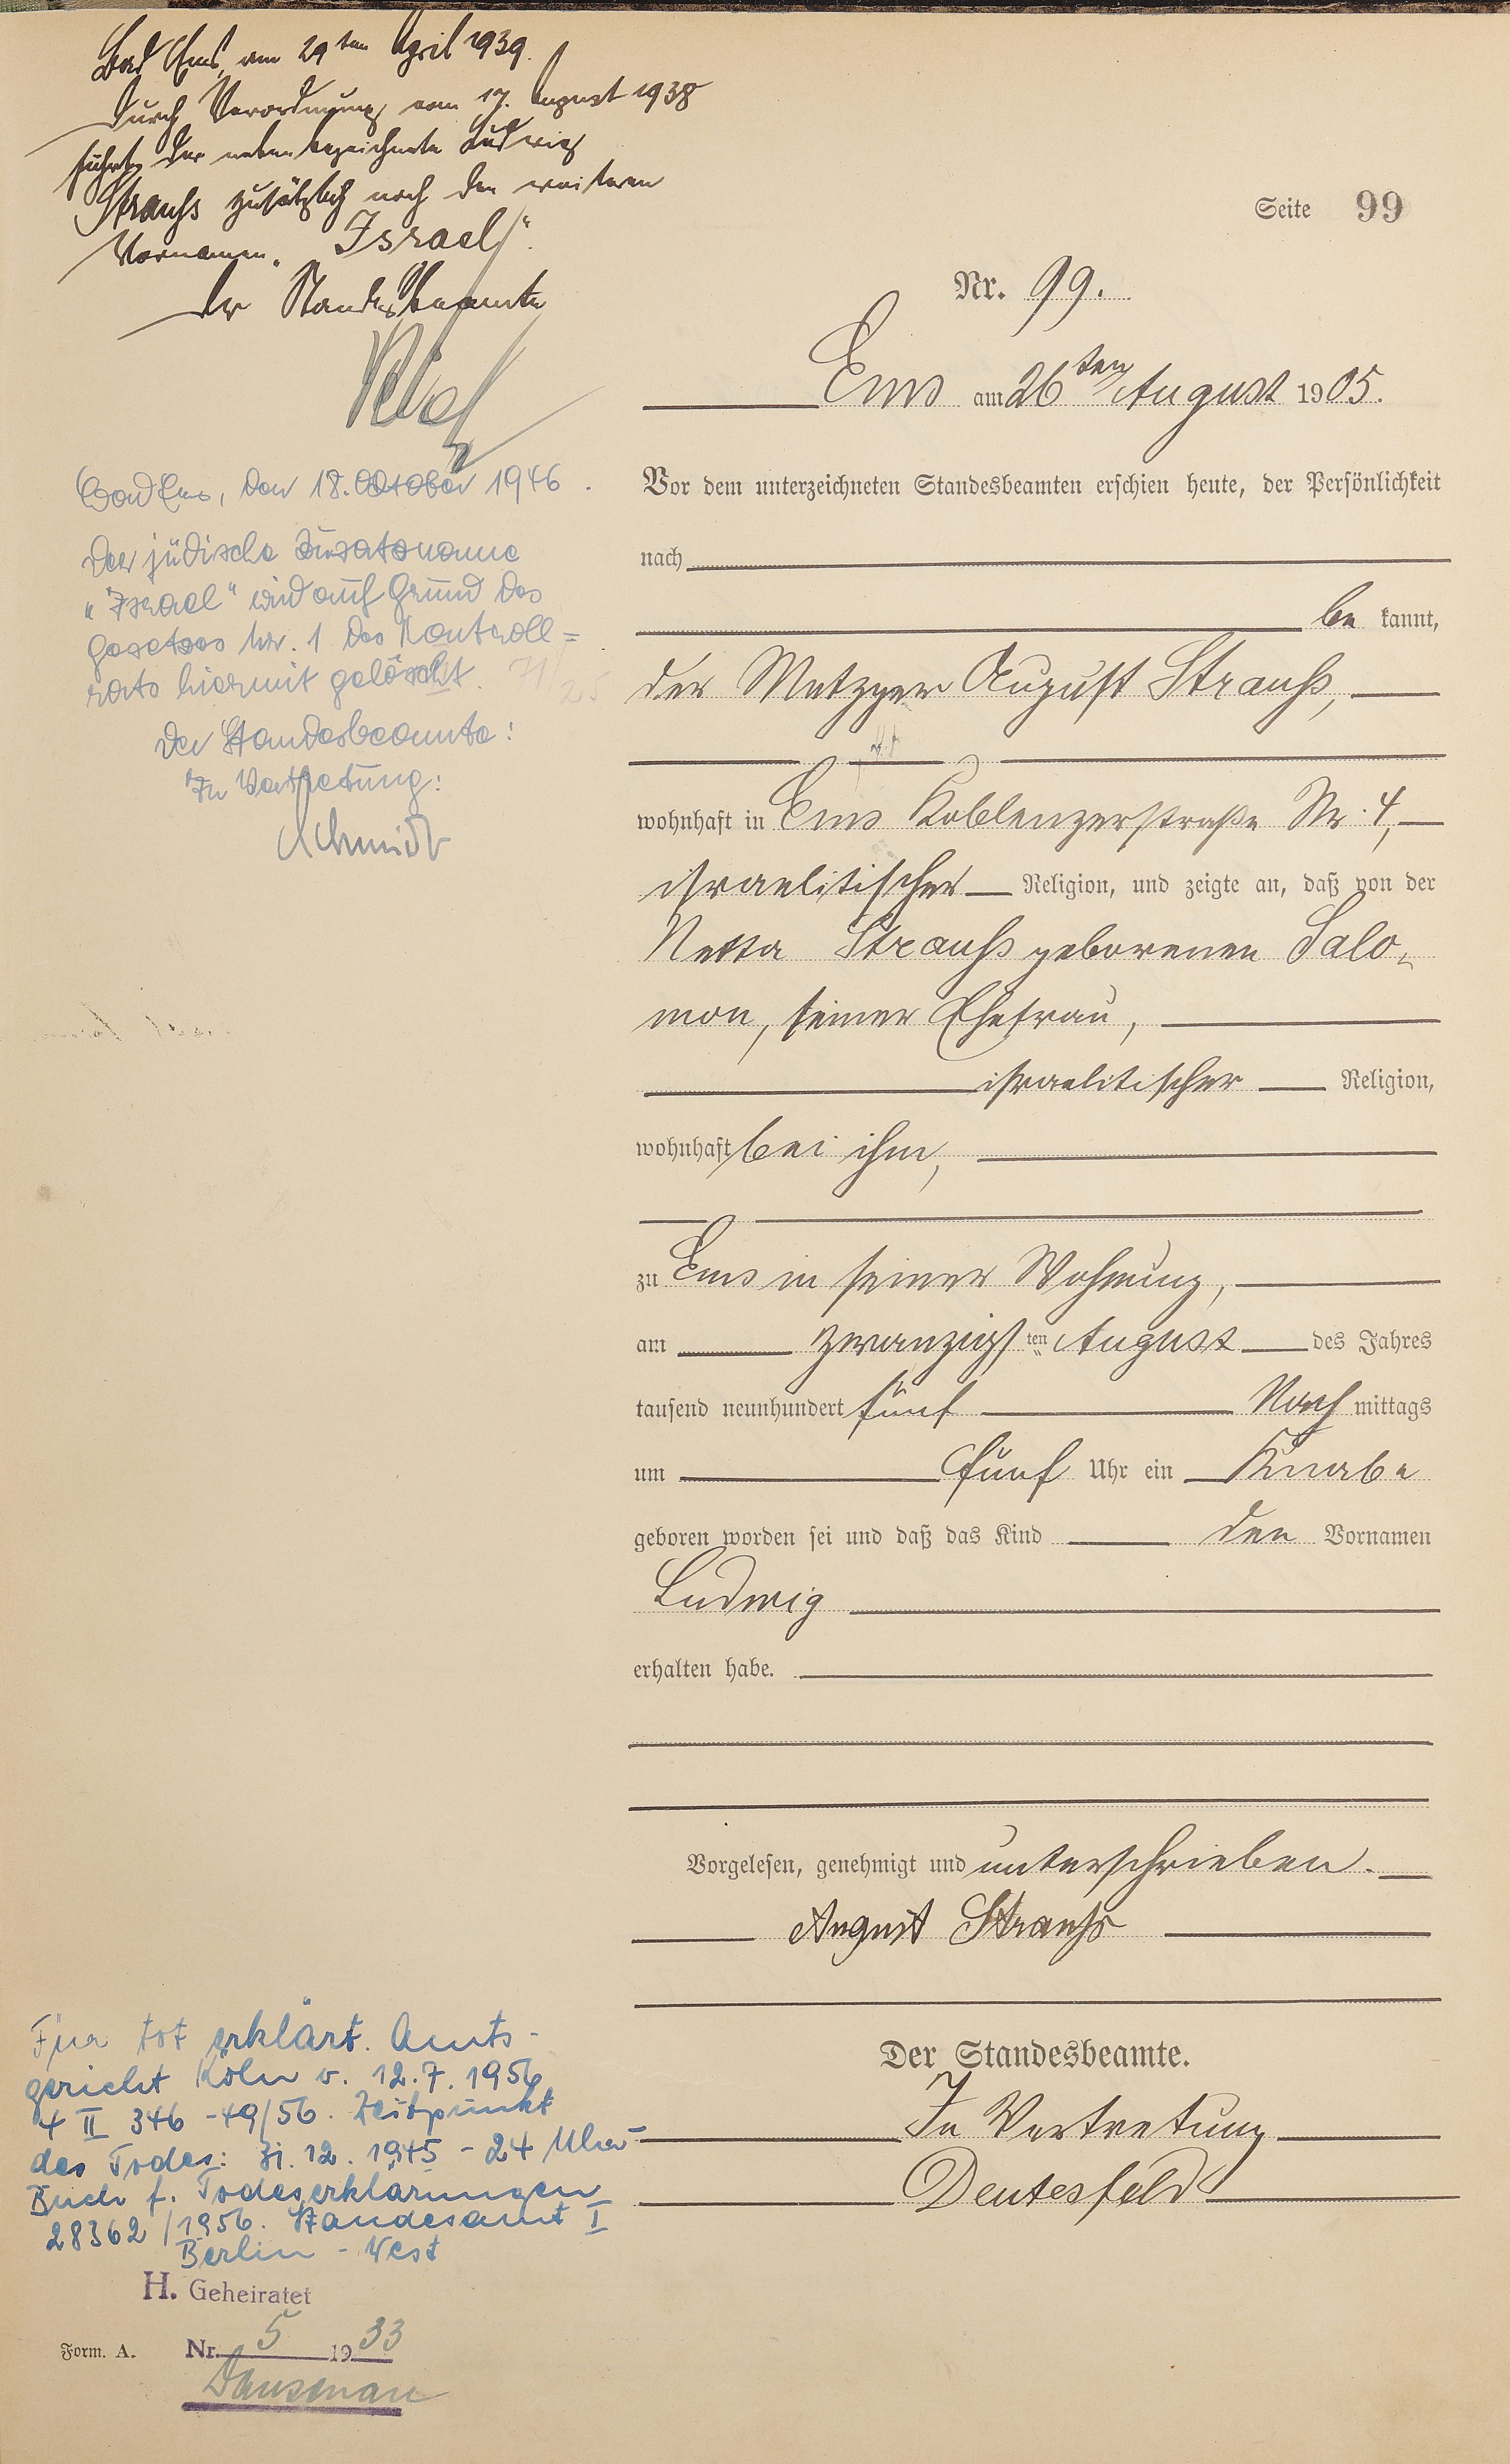 Bad Ems, am 29ten April 1939.
Durch Verordnung vom 17. August 1938
führt der nebenbezeichnete Ludwig
Strauß zusätzlich noch den weiteren
Vornamen „Israel“.
Der Standesbeamte
Bad Ems, den 18. Oktober 1946.
Der jüdische Zusatzname
„Israel“ wird auf Grund des
Gesetzes Nr. 1 des Kontroll=
rats hiermit gelöscht.
Der Standesbeamte:
In Vertretung:
Schmidt
Seite 99
Nr. 99.
Ems am 26ten August 1905.
Vor dem unterzeichneten Standesbeamten erschien heute, der Persönlichkeit
nach
be kannt,
der Metzger August Strauß,
wohnhaft in Ems Koblenzerstraße Nr. 4,
israelitischer Religion, und zeigte an, daß von der
Netta Strauß geborenen Salo-
mon, seiner Ehefrau,
israelitischer Religion,
wohnhaft bei ihm,
zu Ems in seiner Wohnung,
am zwanzigsten August des Jahres
tausend neunhundert fünf Nach mittags
um fünf Uhr ein Knabe
geboren worden sei und daß das Kind den Vornamen
Ludwig
erhalten habe.
Vorgelesen, genehmigt und unterschrieben.
August Strauß
Der Standesbeamte.
In Vertretung
Deutesfeld
Für tot erklärt. Amts-
gericht Köln v. 12.7.1956
4 II 346-49/56. Zeitpunkt
des Todes: 31.12.1945 - 24 Uhr-
Buch f. Todeserklärungen
28362/1956. Standesamt I
Berlin - West
H. Geheiratet
Form. A. Nr. 5 1933
Dausenau